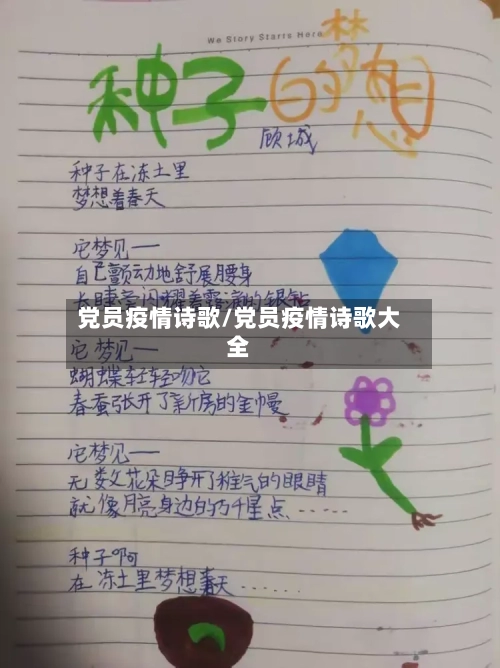 We Story Starts Here
种子的梦想
顾城
种子在冻土里
梦想着春天
它梦见一
自己颤动地舒展腰身
长睫毛闪耀着露滴的银钻
党员疫情诗歌/党员疫情诗歌大
全
它梦见一
蝴蝶轻轻吻它
春蚕张开了新房的金幔
它梦见一
无数花朵睁开了稚气的眼睛
就像月亮身边的万千星点......
种子啊
在冻土里梦想春天......